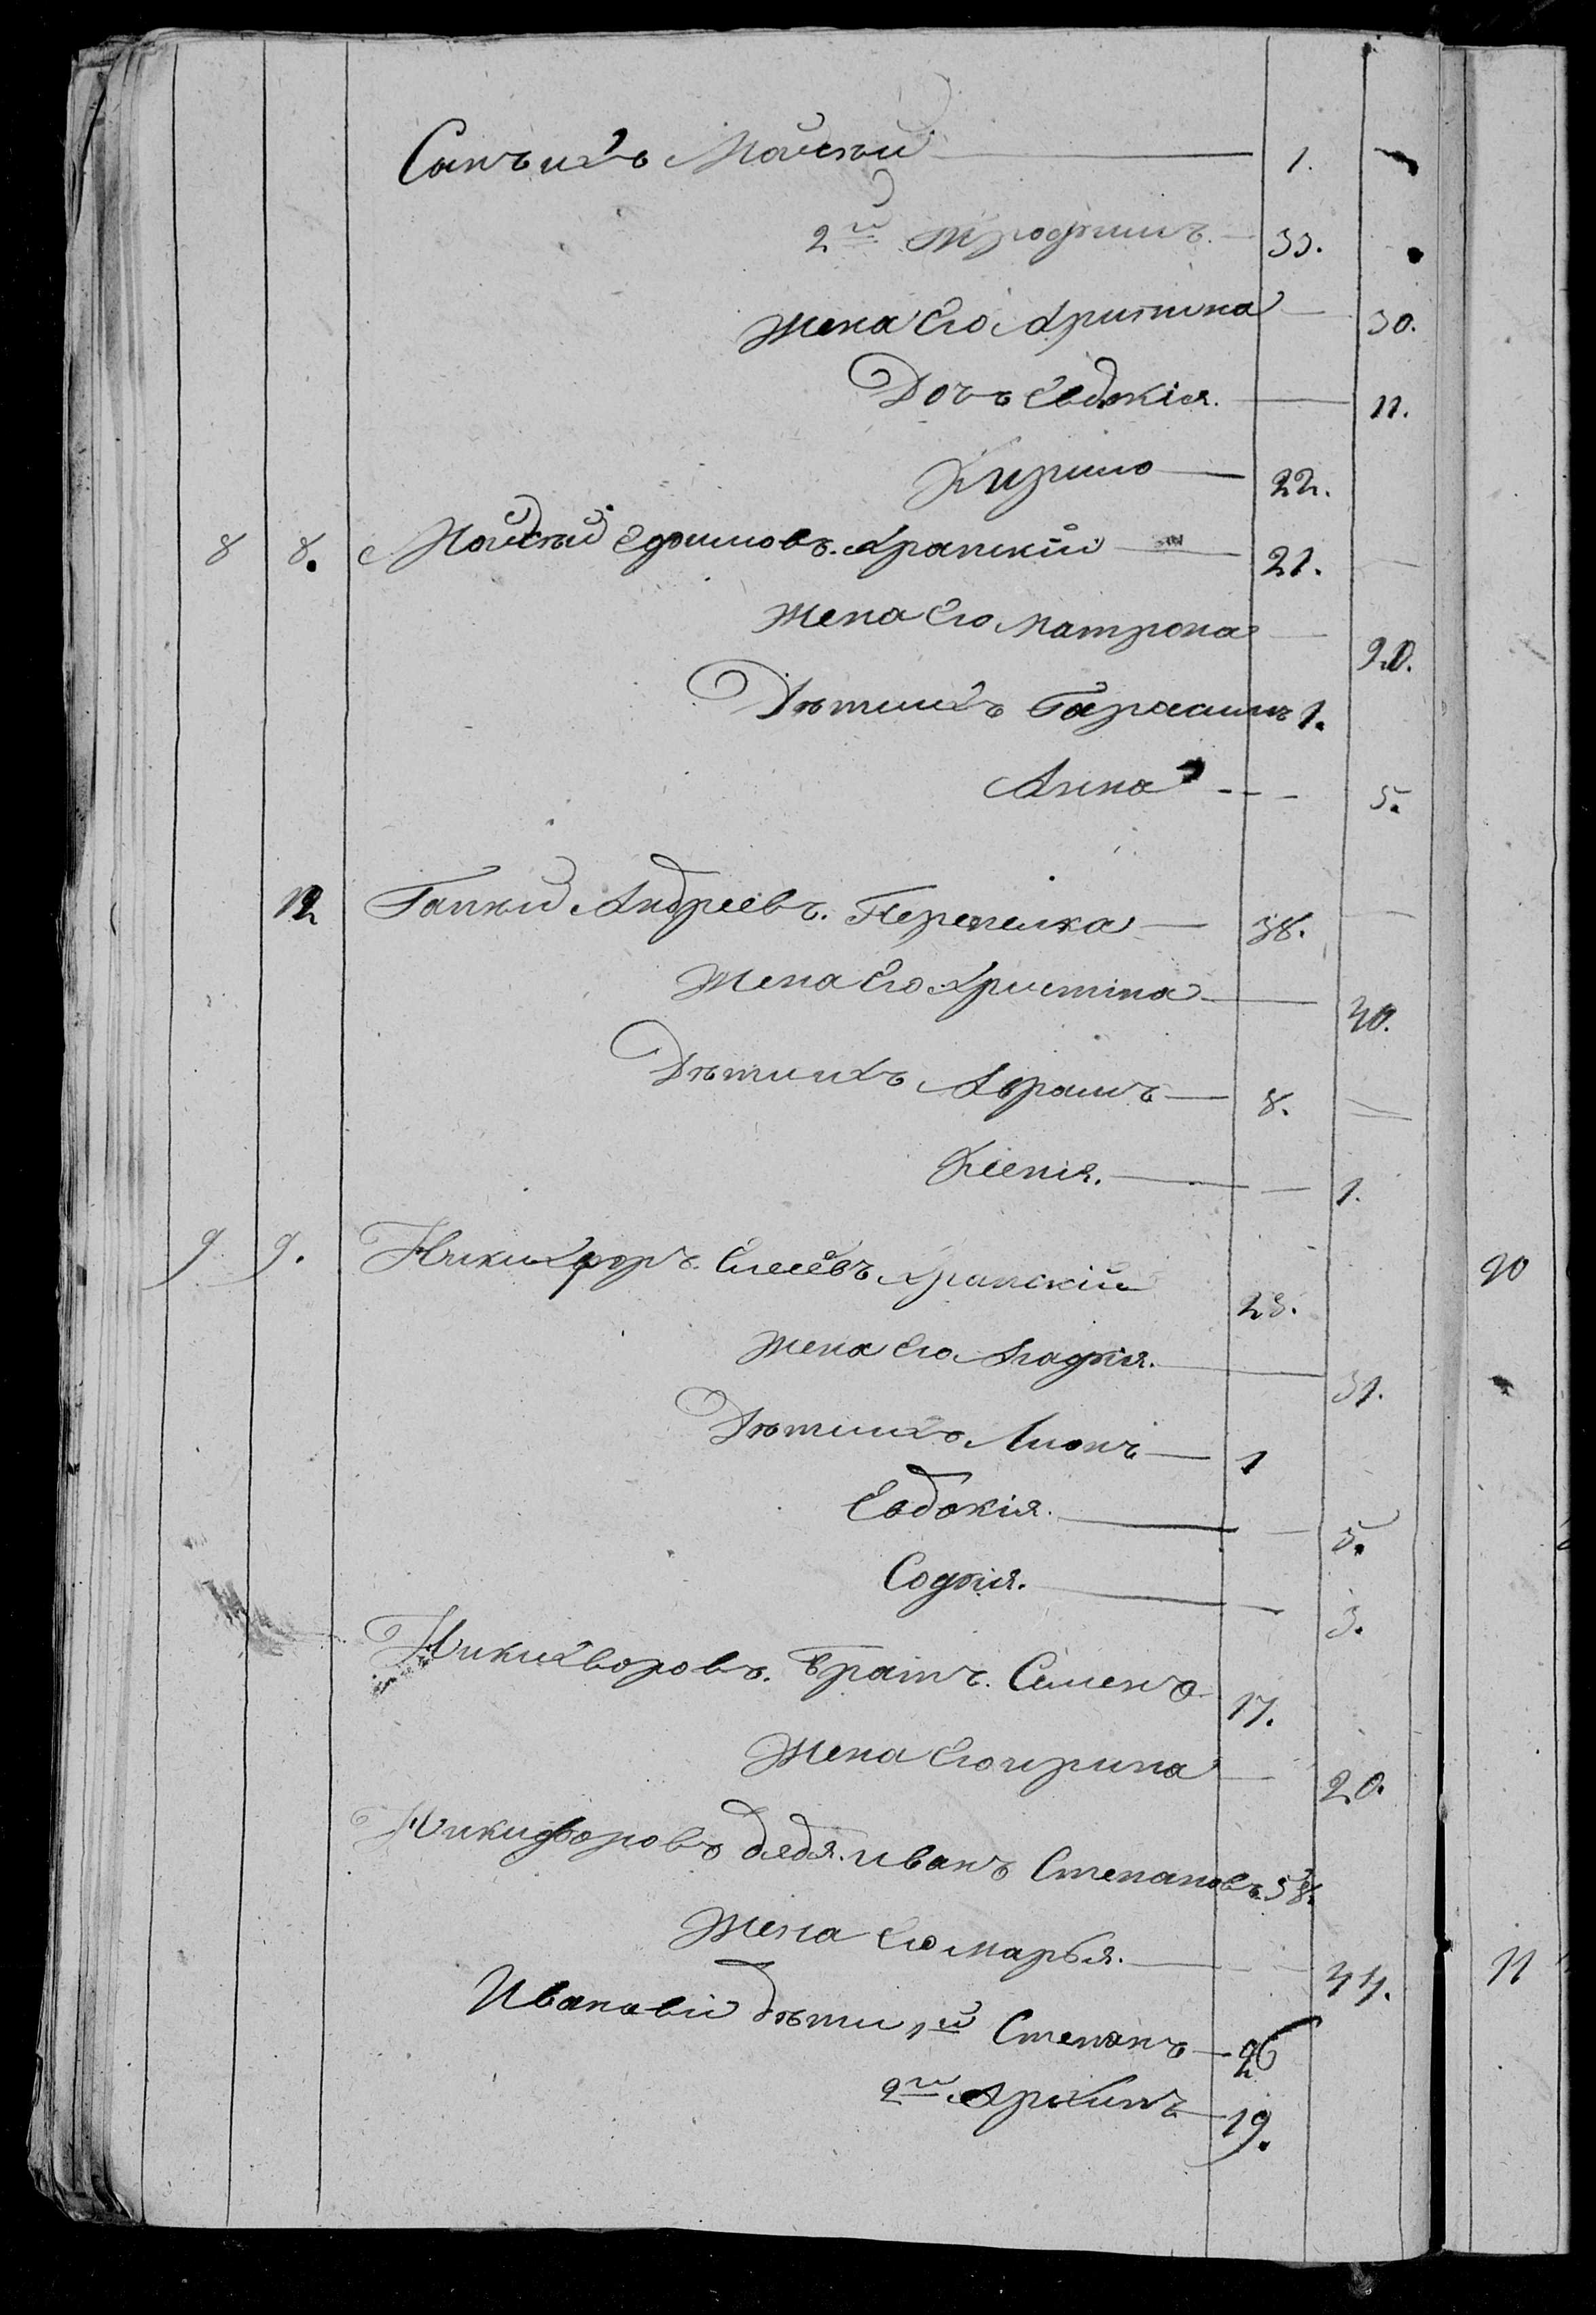 Сынъ ихъ Мойсей 1.
2й Трофимъ. 33.
жена Его Христина 30.
Дочъ Евдокія. 11.
Кирило 22.
8 8. Мойсей Ефимовъ. Храпскій 21.
жена Его Матрона 20.
Дѣти ихъ Гарасимъ 1.
Анна 5.
12 Андреевъ. Перепелка 38.
Жена Его Христина 30.
Дѣти ихъ Абрамъ 8.
Ксенія. 1.
9 9. Никихфоръ. Елсеевъ Храпскій 23.
жена Его Агафія. 31.
Дѣти ихъ 1
Евдокія. 5.
Софія. 3.
Никихворовъ. братъ. Семенъ 17.
Жена Его ирина 20.
Никифоровъ дядя. иванъ Степановъ 58.
Жена Его марья. 44.
Ивановіи дѣти 1й Степанъ 26
2й Архипъ 19.
20
11